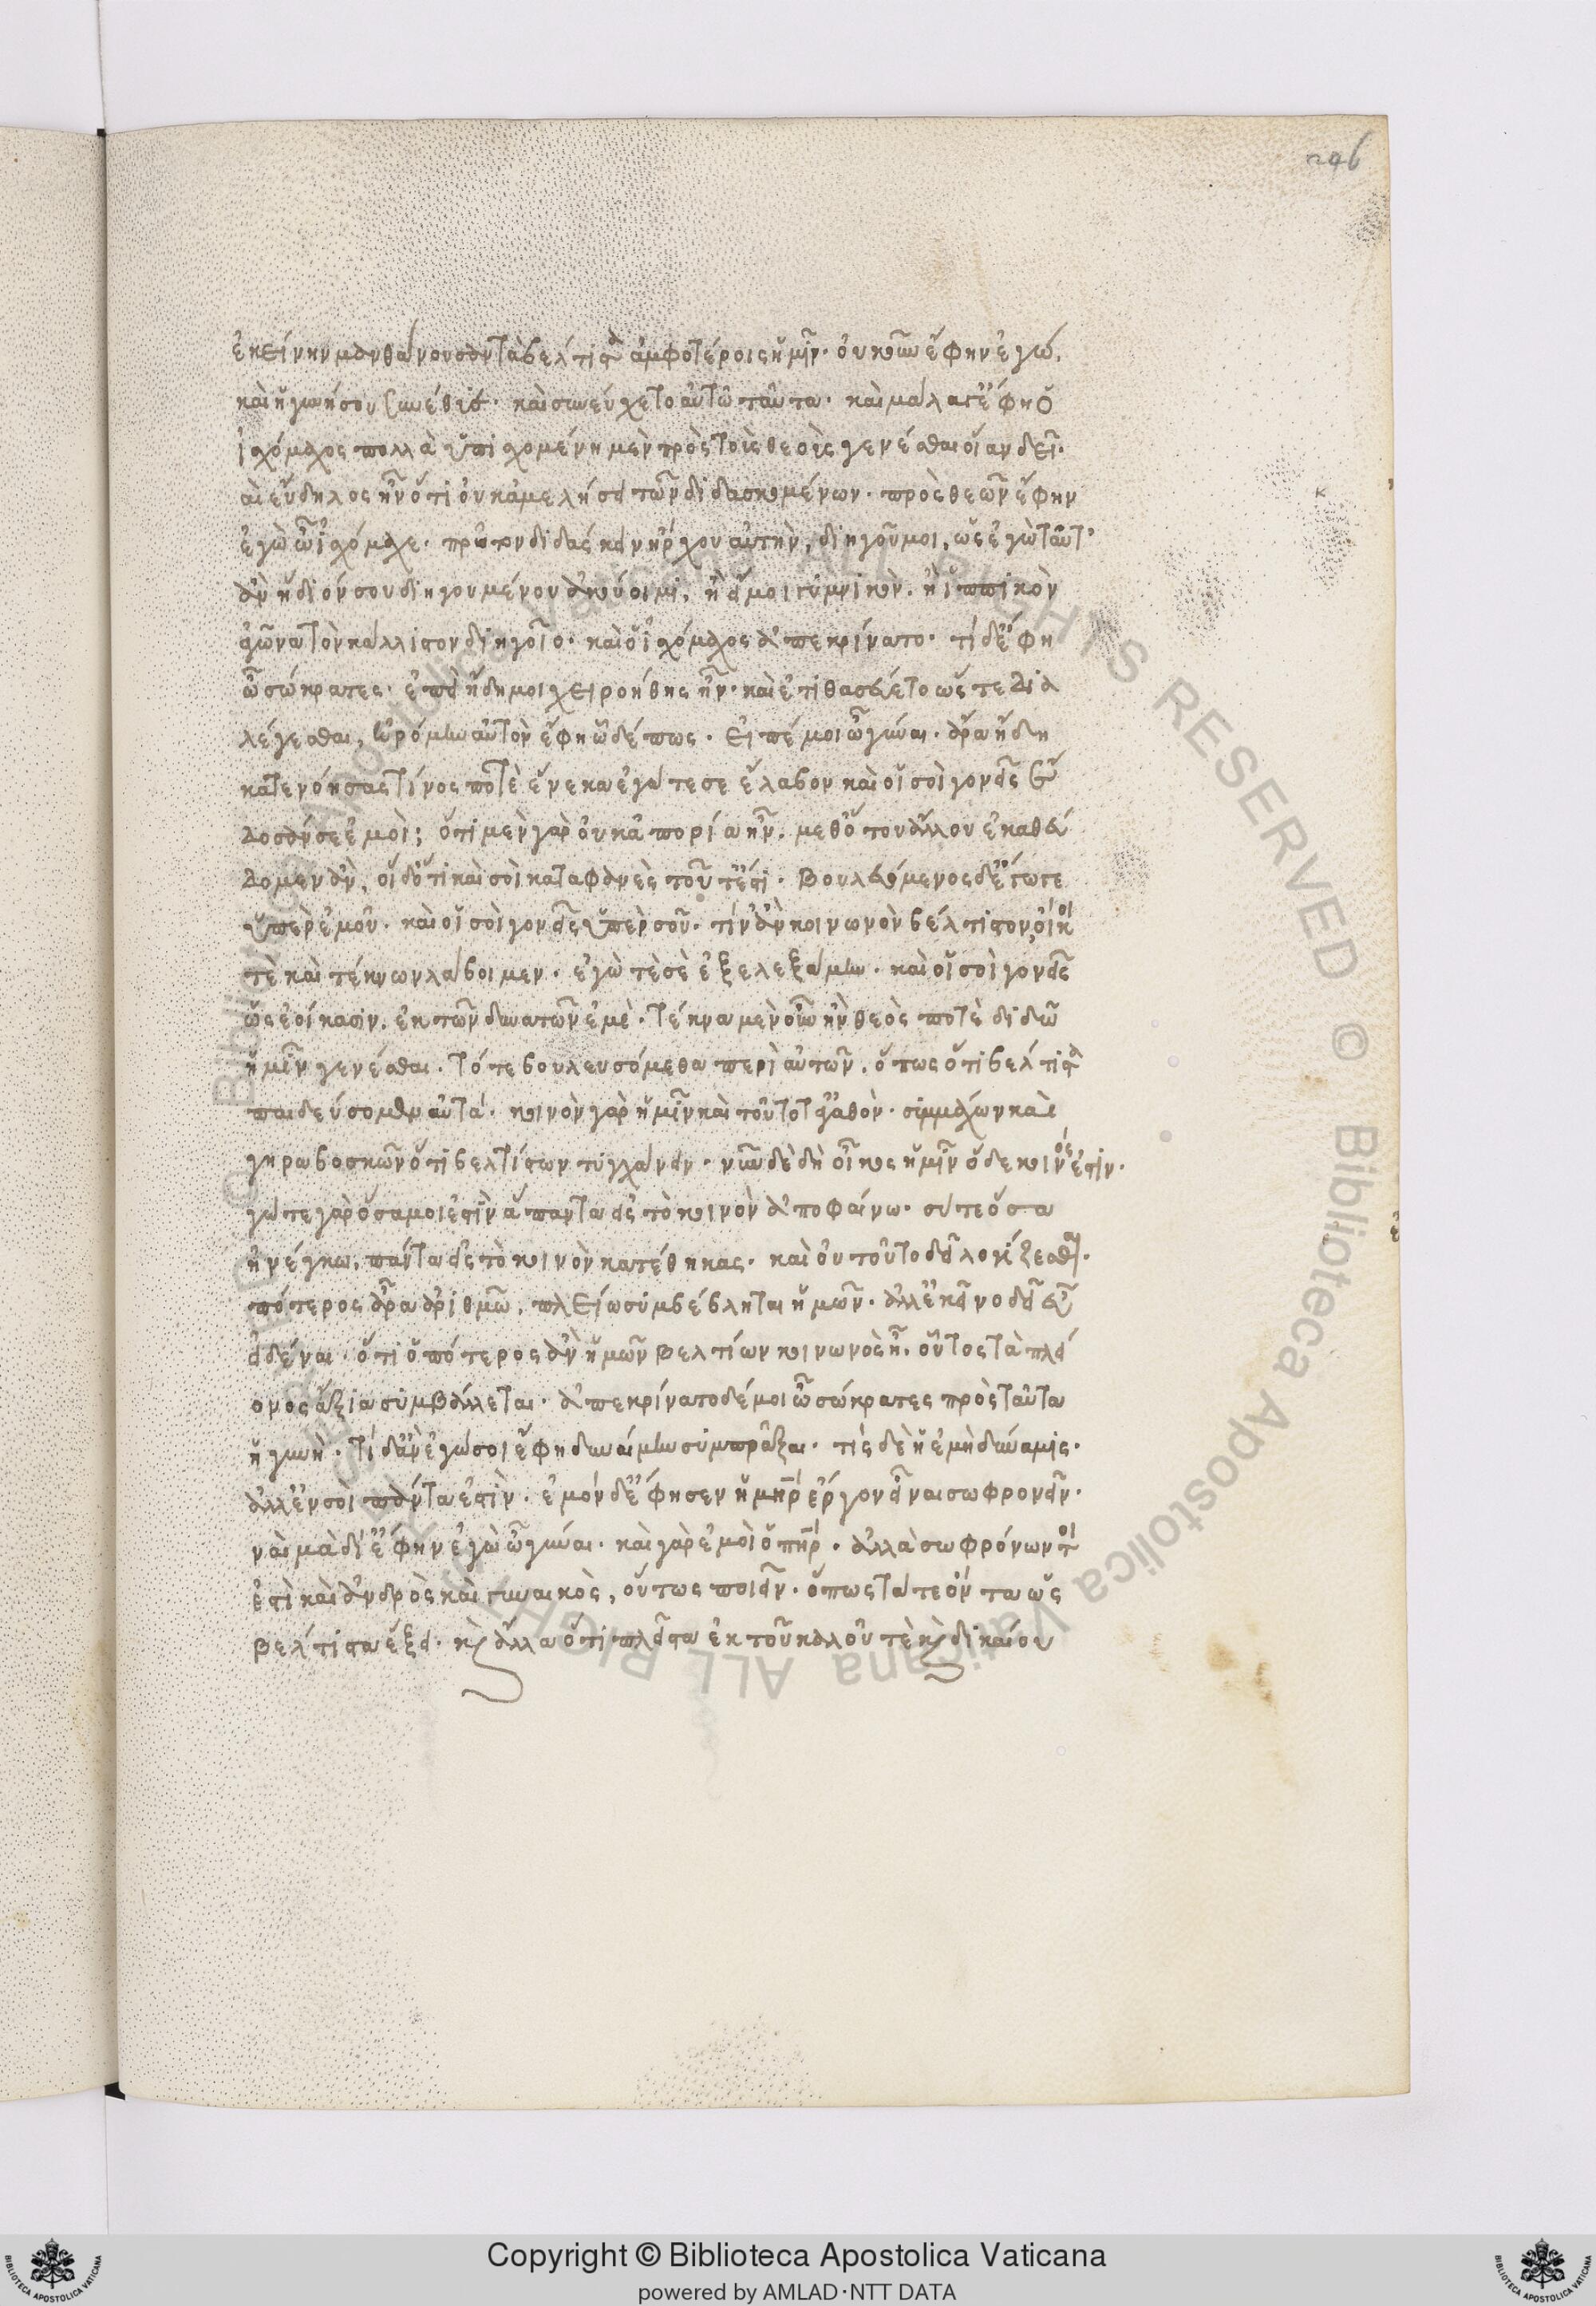 296
ἐκείνην μανθάνουσαν τὰ βέλτιστα ἀμφοτέροις ἡμῖν. οὐκοῦν ἔφην ἐγώ,
καὶ ἡ γυνή σου συνέθυε. καὶ συνεύχετο αὐτῶ ταῦτα. καὶ μάλα γ' ἔφη ὁ
ἰσχόμαχος πολλὰ ὑπισχομένη μὲν πρὸς τοὺς θεοὺς γενέσθαι οἵαν δεῖ.
καὶ εὔδηλος ἦν ὅτι οὐκ ἀμελήσει τῶν διδασκομένων. πρὸς θεῶν ἔφην
ἐγὼ ὦ ἰσχόμαχε. πρῶτον διδάσκειν ἤρχου αὐτὴν, διηγοῦ μοι, ὡς ἐγὼ ταῦτ'
ἂν ἥδιόν σου διηγουμένου ἀκούοιμι, ἢ εἴ μοι γυμνικὸν. ἢ ἱππικὸν
ἀγῶνα τὸν κάλλιστον διηγοῖο. καὶ ὁ ἰσχόμαχος ἀπεκρίνατο. τί δ' ἔφη
ὦ σώκρατες. ἐπεὶ ἤδη μοι χειροήθης ἦν. καὶ ἐτιθασεύετο ὥστε δια
λέγεσθαι, ἠρόμην αὐτὸν ἔφη ὧδέ πως. εἰπέ μοι ὦ γύναι. ἆρα ἤδη
κατενόησας τίνος ποτὲ ἕνεκα ἐγώ τε σε ἔλαβον καὶ οἱ σοὶ γονεῖς ἔ
δοσάν σε ἐμοὶ; ὅτι μὲν γὰρ οὐκ ἀπορία ἦν. μεθ' ὅτου ἄλλου ἐκαθεύ
δομεν ἂν, οἶδ' ὅτι καὶ σοὶ καταφανὲς τοῦτ' ἐστί. βουλευόμενος δ' ἔγωγε
ὑπὲρ ἐμοῦ. καὶ οἱ σοὶ γονεῖς ὑπὲρ σοῦ. τίν' ἂν κοινωνὸν βέλτιστον οἴκου
τὲ καὶ τέκνων λάβοιμεν. ἐγώ τὲ σὲ ἐξελεξάμην. καὶ οἱ σοὶ γονεῖς
ὡς ἐοίκασιν. ἐκ τῶν δυνατῶν ἐμὲ. τέκνα μὲν οὖν ἢν θεὸς ποτὲ διδῶ
ἡμῖν γενέσθαι. τότε βουλευσόμεθα περὶ αὐτῶν. ὅπως ὅτι βέλτιστα
παιδεύσομεν αὐτά. κοινὸν γὰρ ἡμῖν καὶ τοῦτο τἀγαθὸν. συμμάχων καὶ
γηροβοσκῶν ὅτι βελτίστων τυγχάνειν. νῦν δὲ δὴ οἶκος ἡμῖν ὅδε κοινός ἐστιν.
ἐγώ τε γὰρ ὅσα μοι ἐστὶν ἅπαντα εἰς τὸ κοινὸν ἀποφαίνω. σύ τε ὅσα
ἠνέγκω. πάντα εἰς τὸ κοινὸν κατέθηκας. καὶ οὐ τοῦτο δεῖ λογίζεσθαι.
πότερος ἄρα ἀριθμῶ, πλείω συμβέβληται ἡμῶν. ἀλλ' ἐκεῖνο δεῖ εὖ
εἰδέναι. ὅτι ὁπότερος ἂν ἡμῶν βελτίων κοινωνὸς ἦ. οὗτος τὰ πλεί
ονος ἄξια συμβάλλεται. ἀπεκρίνατο δέ μοι ὦ σώκρατες πρὸς ταῦτα
ἡ γυνὴ. τί δ' ἂν ἐγώ σοι ἔφη δυναίμην συμπρᾶξαι. τίς δὲ ἡ ἐμὴ δύναμις.
ἀλλ' ἐν σοὶ πάντα ἐστὶν. ἐμὸν δ' ἔφησεν ἡ μηρ ἔργον εἶναι σωφρονεῖν.
ναὶ μὰ δί' ἔφην ἐγὼ ὦ γύναι. καὶ γὰρ ἐμοὶ ὁ πηρ. ἀλλὰ σωφρόνων τοί
ἐστὶ καὶ ἀνδρὸς καὶ γυναικὸς, οὕτως ποιεῖν. ὅπως τά τε ὄντα ὡς
βέλτιστα ἕξει. καὶ ἄλλα ὅτι πλεῖστα ἐκ τοῦ καλοῦ τὲ καὶ δικαίου
Copyright © Biblioteca Apostolica Vaticana
powered by AMLAD·NTT DATA